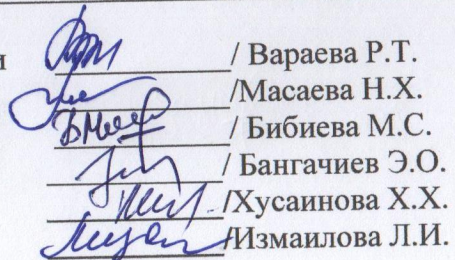 и / Вараева Р.Т.
/Масаева Н.Х.
/ Бибиева М.С.
/ Бангачиев Э.О.
/Хусаинова Х.Х.
/Измаилова Л.И.